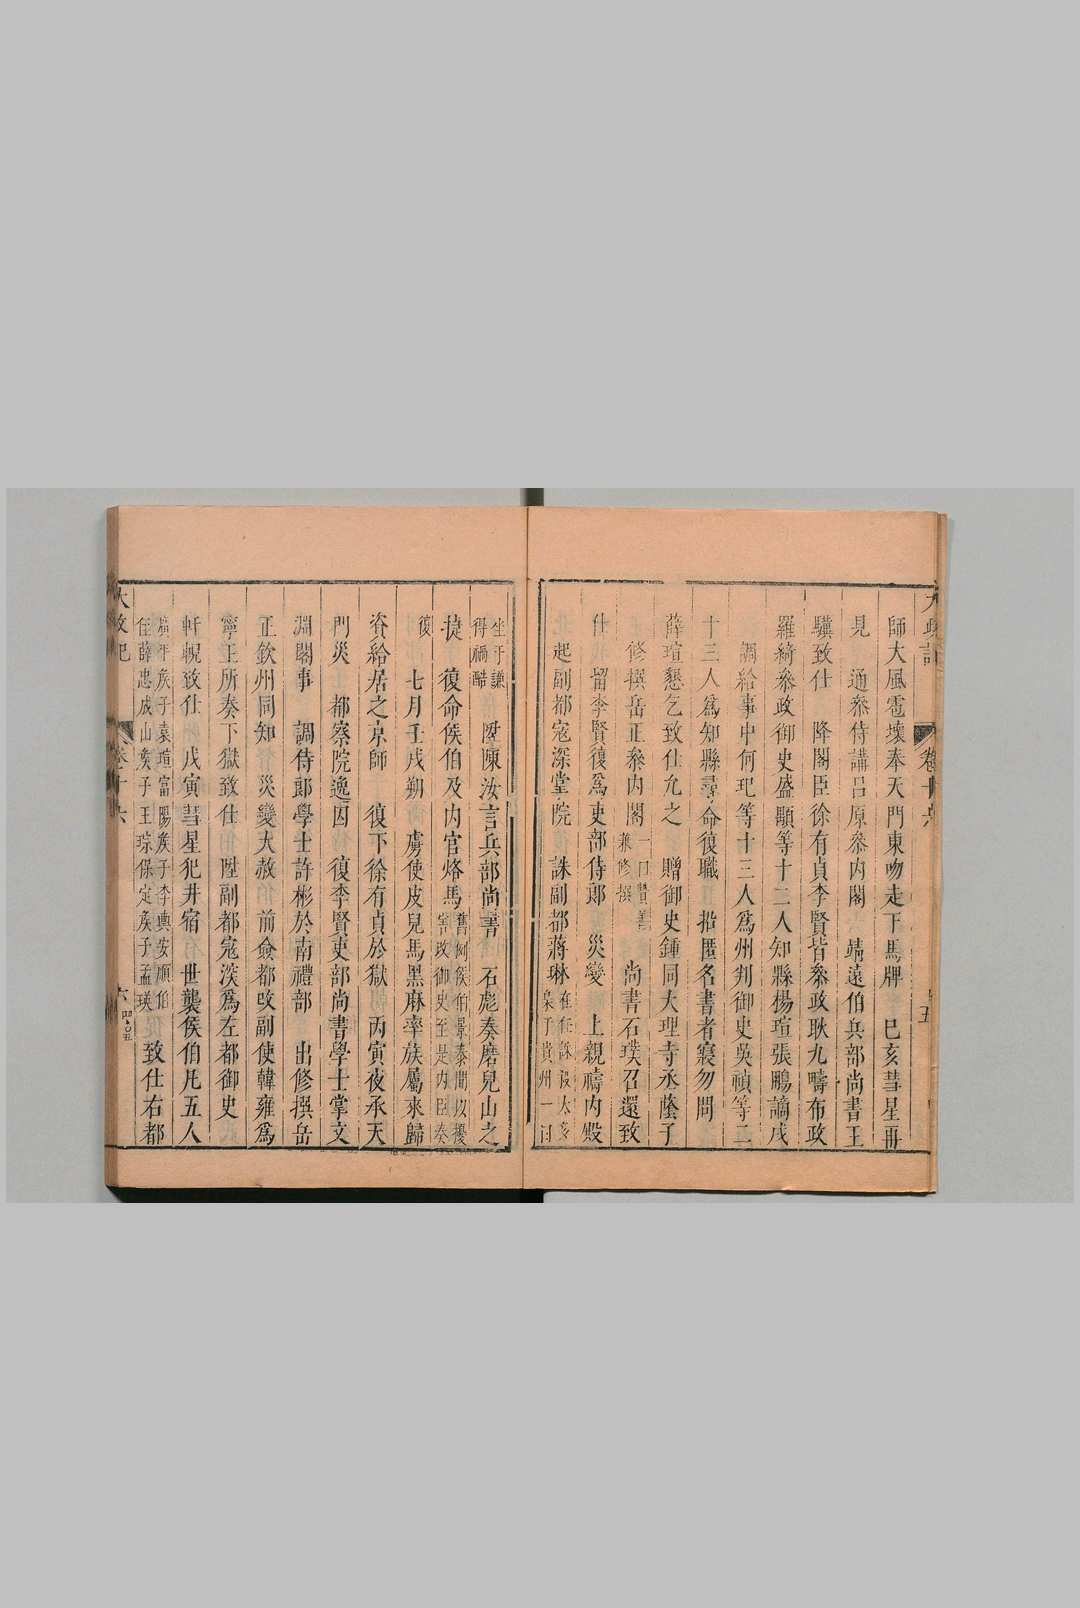 師大風雹壞奉天門東吻走下馬牌　巳亥彗星再
見　通叅侍講呂原叅內閣　靖遠伯兵部尚書王
驥致仕　降閣臣徐有貞李賢皆叅政耿九疇布政
羅綺叅政御史盛顒等十二人知縣楊瑄張鵬謫戍
調給事中何玘等十三人爲州判御史吳禎等二
十三人爲知縣尋命復職　揩匿名書者寢勿問
薛瑄懇乞致仕允之　贈御史鍾同大理寺丞蔭子
修撰岳正叅內閣 兼修撰　尚書石璞召還致
仕　留李賢復爲吏部侍郎　災變　上親禱內殿
起副都寇深堂院　誅副都蔣琳
坐于謙
得禍酷
陞陳汝言兵部尚書　石彪奏磨兒山之
捷　復命侯伯及內官烙馬
舊例侯伯景泰間以擾
害改御史至是內臣奏
復　七月壬戌朔　虜使皮兒馬黑麻率族屬來歸
資給居之京師　復下徐有貞於獄　丙寅夜承天
門災　都察院逸囚　復李賢吏部尚書學士掌文
淵閣事　調侍郎學士許彬於南禮部　出修撰岳
正欽州同知　災變大赦　前僉都改副使韓雍爲
寧王所奏下獄致仕　陞副都寇深爲左都御史
軒輗致仕　戊寅彗星犯井宿　世襲侯伯凡五人
廣平侯子袁瑄富陽侯子李輿安順伯
侄薛忠成山侯子王琮保定侯子孟瑛
致仕右都
大政記　卷十六　六